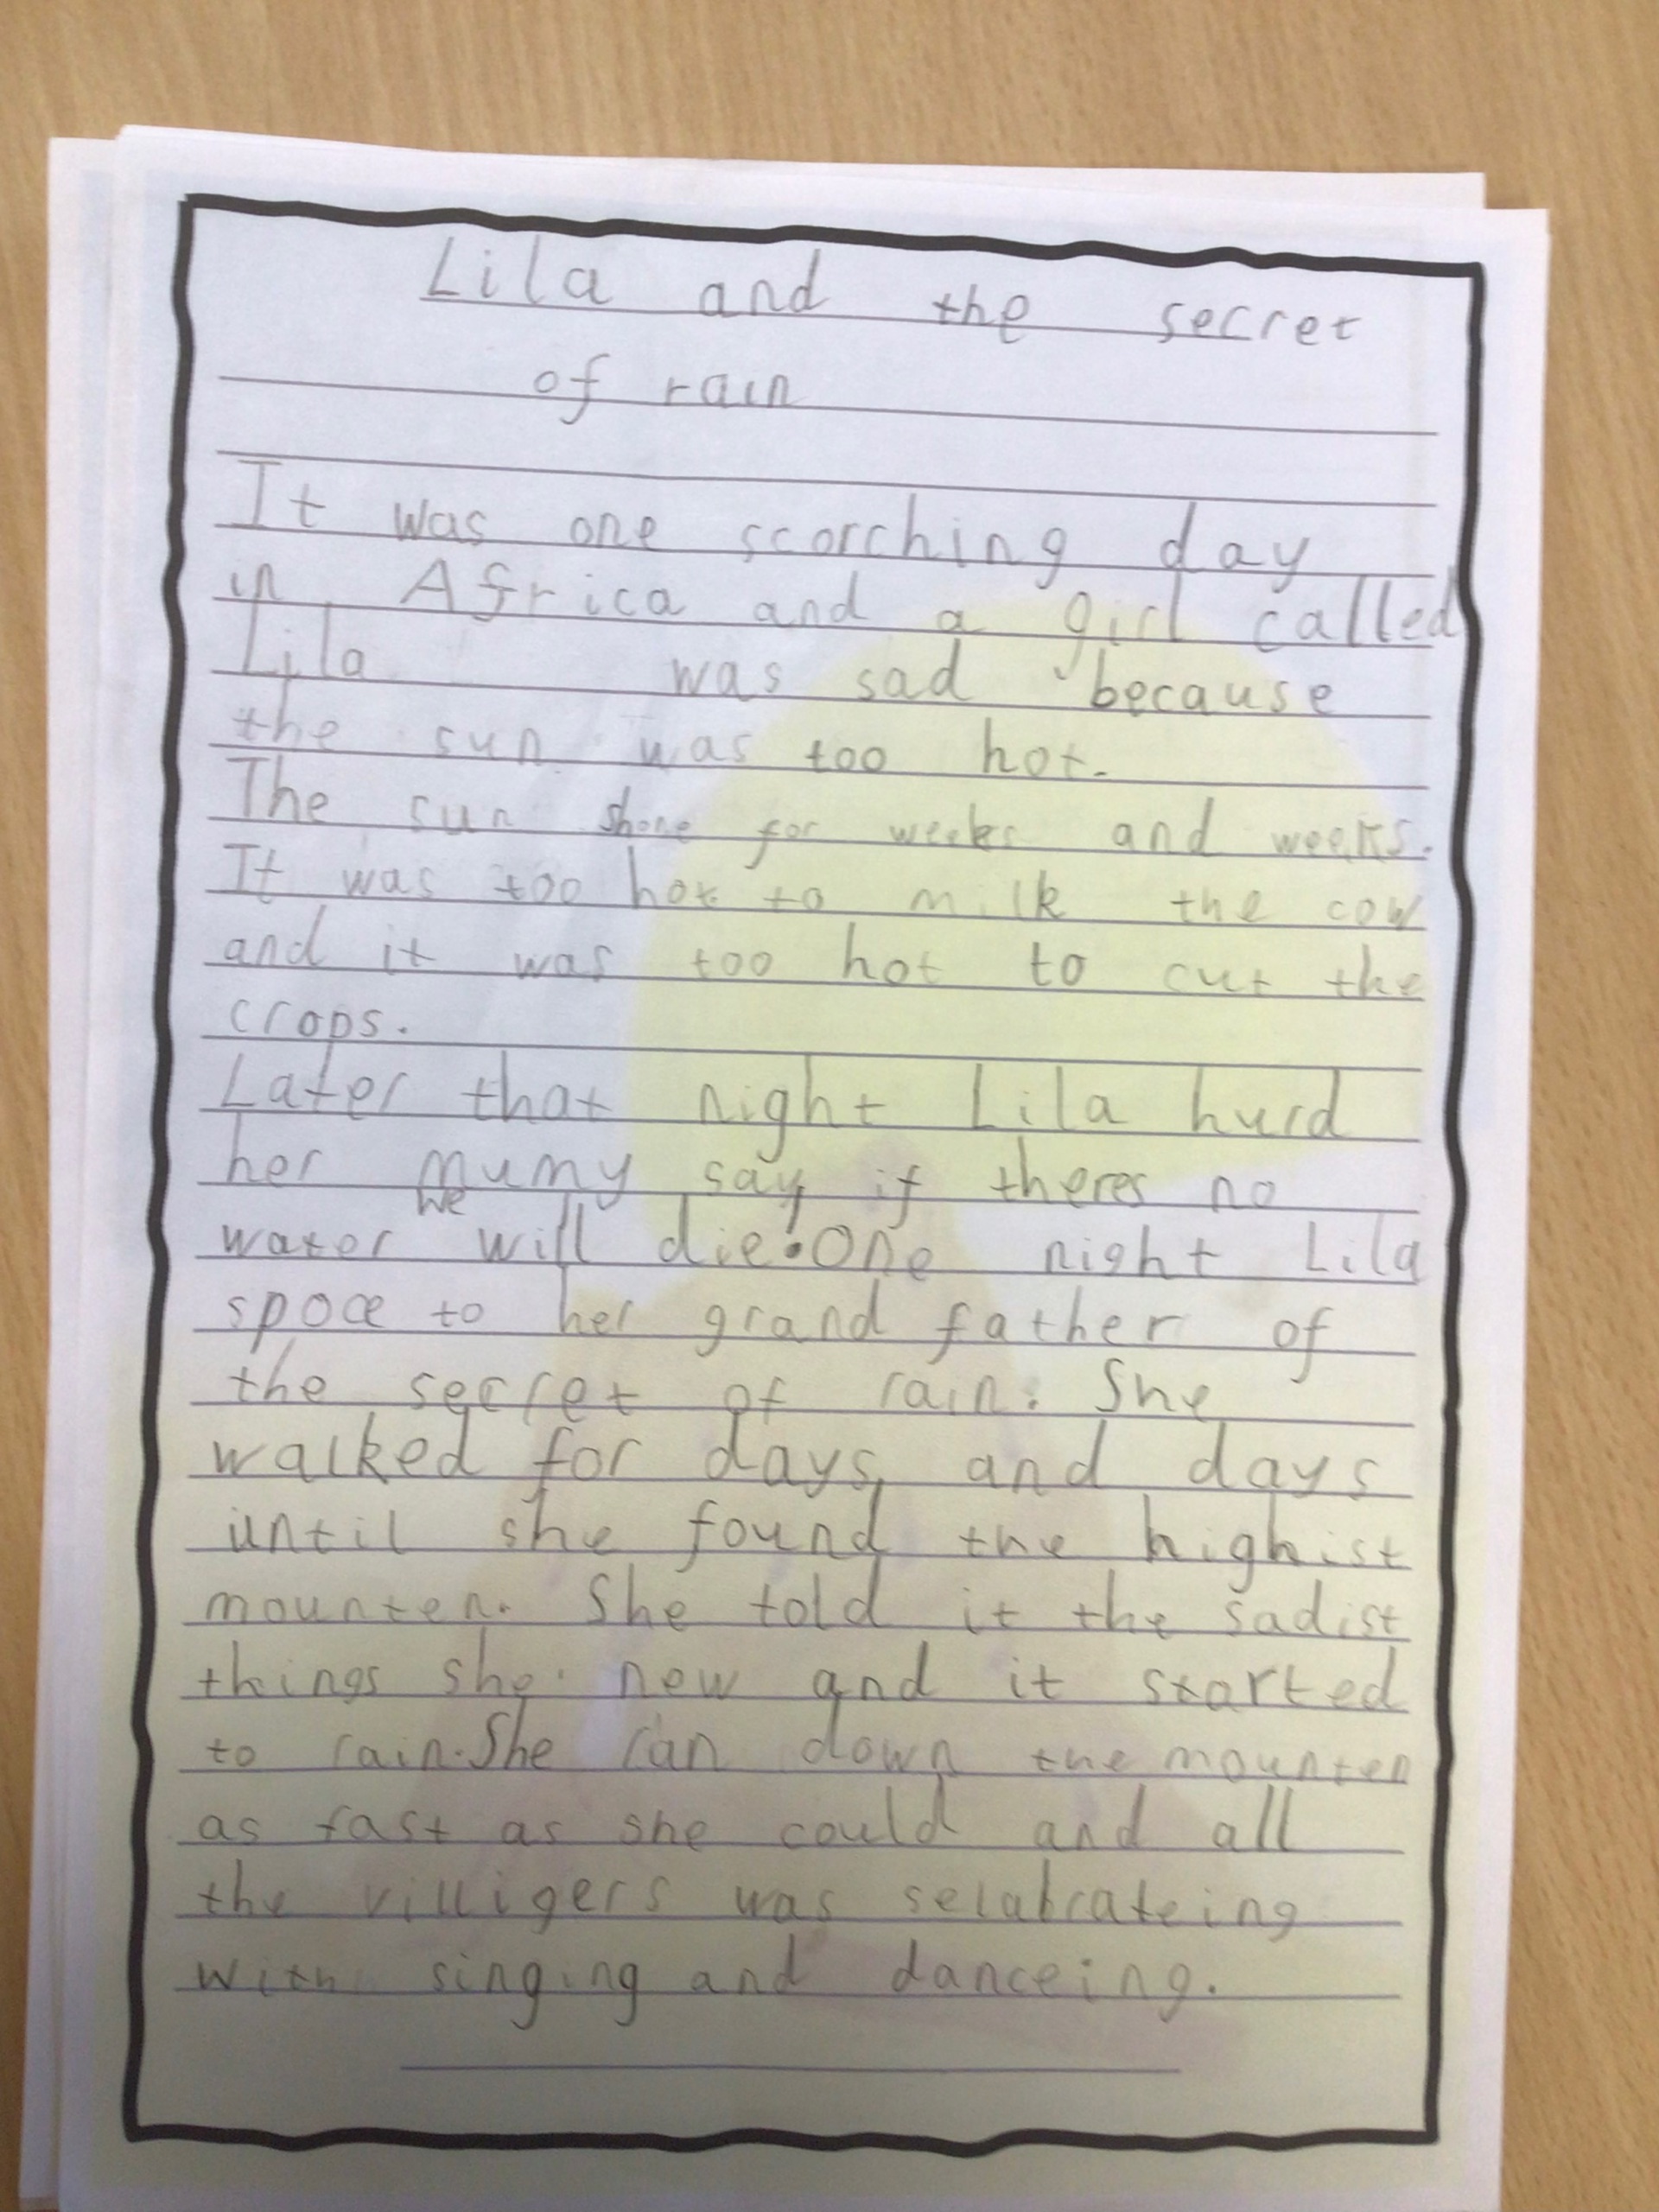 Lila and the secret
of rain
It was one scorching day
in Africa and a girl called
Lila was sad because
the sun was too hot.
The sun shone for weeks and weeks.
It was too hot to milk the cow
and it was too hot to cut the
crops.
Later that night Lila hurd
her mumy say if theres no
we
water will die. One night Lila
spoce to her grand father of
the secret of rain. She
walked for days, and days
until she found the highist
mounten. She told it the sadist
things she new and it started
to rain. She ran down the mounten
as fast as she could and all
the villigers was selabrateing
with singing and danceing.